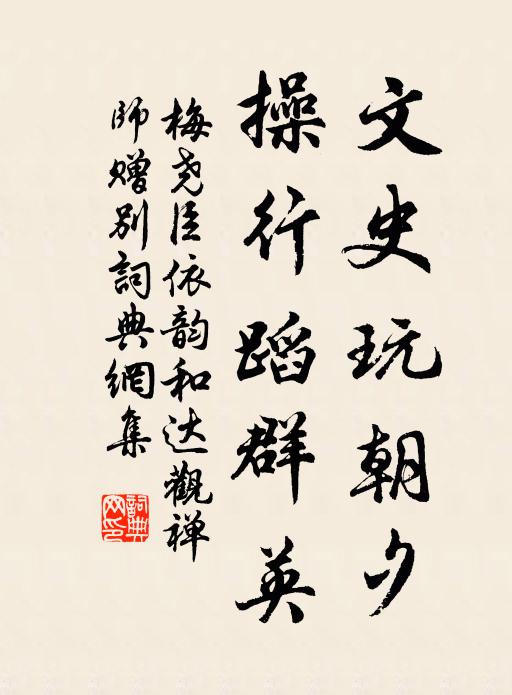 文史玩朝夕
操行蹈群英
梅尧臣依韵和达觀禅
師赠别詞典網集
詞典网印